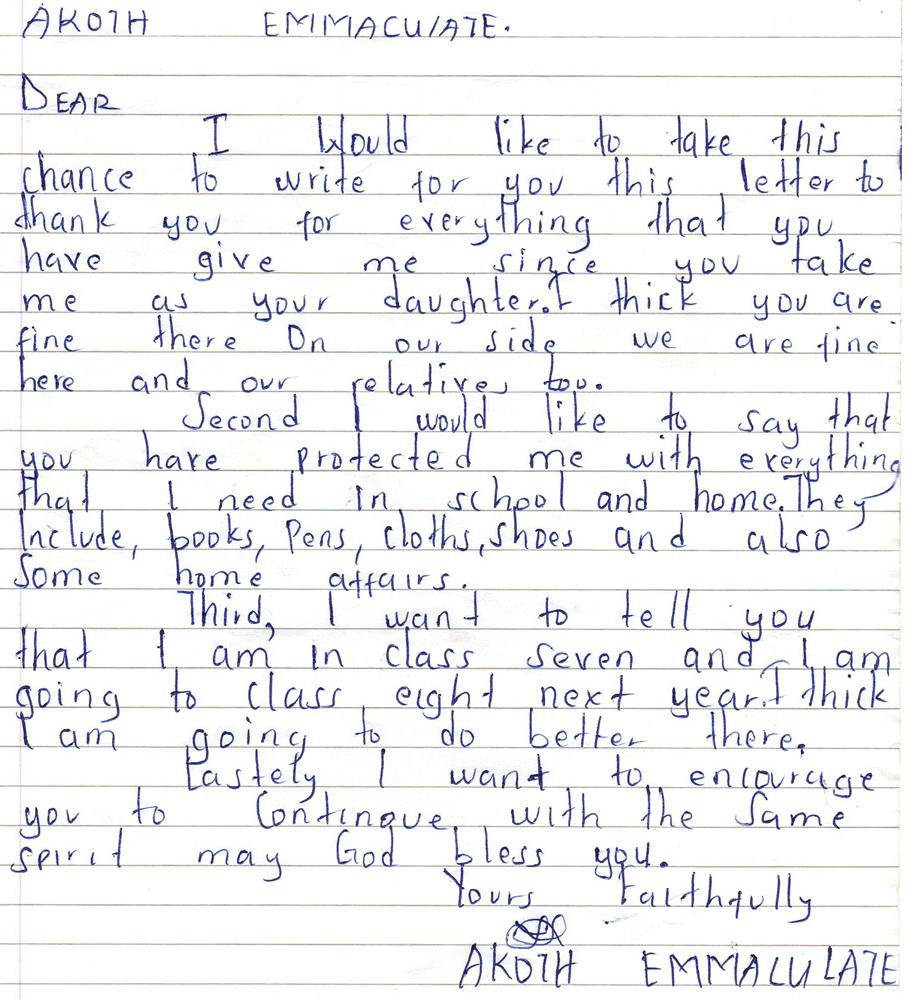 AKOTH EMMACULATE.
DEAR
I Would like to take this
chance to write for you this letter to
thank you for everything that you
have give me since you take
me as your daughter.I thick you are
fine there On our side we are fine
here and our relatives too.
Second I would like to say that
you have protected me with everything
that I need in school and home.They
Include, books, Pens, cloths, shoes and also
Some home affairs.
Third, I want to tell you
that I am in class seven and I am
going to class eight next year.I thick
I am going to do better there.
Lastely I want to encourage
you to Contingue with the Same
spirit may God bless you.
Yours Faithfully
AKOTH EMMACULATE